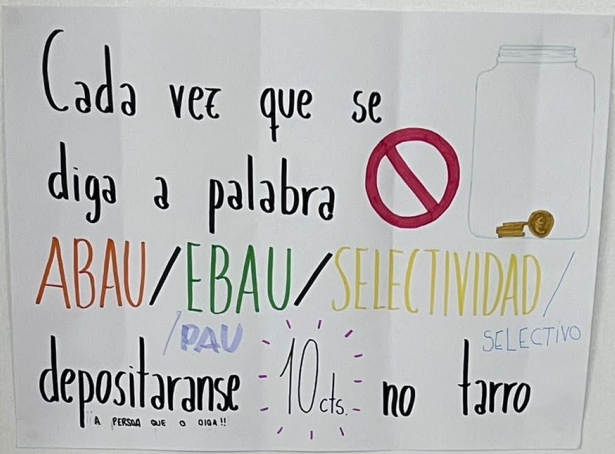 Cada vez que se
diga a palabra
ABAU/EBAU/SELECTIVIDAD/
/PAU SELECTIVO
depositaranse 10 cts. no tarro
¡¡A PERSOA QUE O DIGA!!